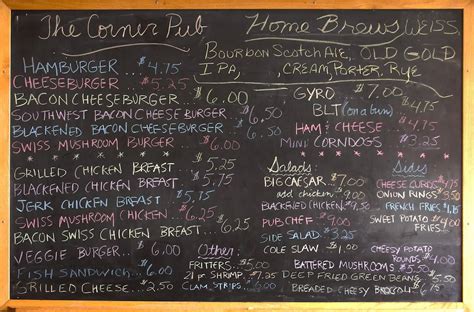 The Corner Pub
HAMBURGER ... $4.75
CHEESEBURGER ... $5.25
BACON CHEESEBURGER ... $6.00
SOUTHWEST BACON CHEESEBURGER $6.50
BLACKENED BACON CHEESEBURGER $6.50
SWISS MUSHROOM BURGER ... $6.00
GRILLED CHICKEN BREAST ... 5.25
BLACKENED CHICKEN BREAST ... $5.75
JERK CHICKEN BREAST ... $5.75
SWISS MUSHROOM CHICKEN ... $6.25
BACON SWISS CHICKEN BREAST ... $6.25
VEGGIE BURGER ... $6.00
FISH SANDWICH ... $6.00
GRILLED CHEESE ... $2.50
Other:
FRITTERS ... $5.50
21 pc SHRIMP ... $7.25
CLAM STRIPS ... $6.50
Home Brews, WEISS,
BOURBON SCOTCH ALE, OLD GOLD
IPA, CREAM, PORTER, RYE
GYRO ... $7.00
BLT (on a bun) $4.75
HAM & CHEESE ... $4.75
MINI CORNDOGS ... $3.25
Salads:
BIG CAESAR ... $7.00
add chicken ... $9.00
BLACKENED CHICKEN $9.00
PUB CHEF ... $9.00
SIDE SALAD ... $3.25
COLE SLAW ... $1.50
Sides
CHEESE CURDS
ONION RINGS
FRENCH FRIES
SWEET POTATO FRIES
CHEESY POTATO ROUNDS $4.00
BATTERED MUSHROOMS
DEEP FRIED GREEN BEANS
BREADED CHEESY BROCCOLI